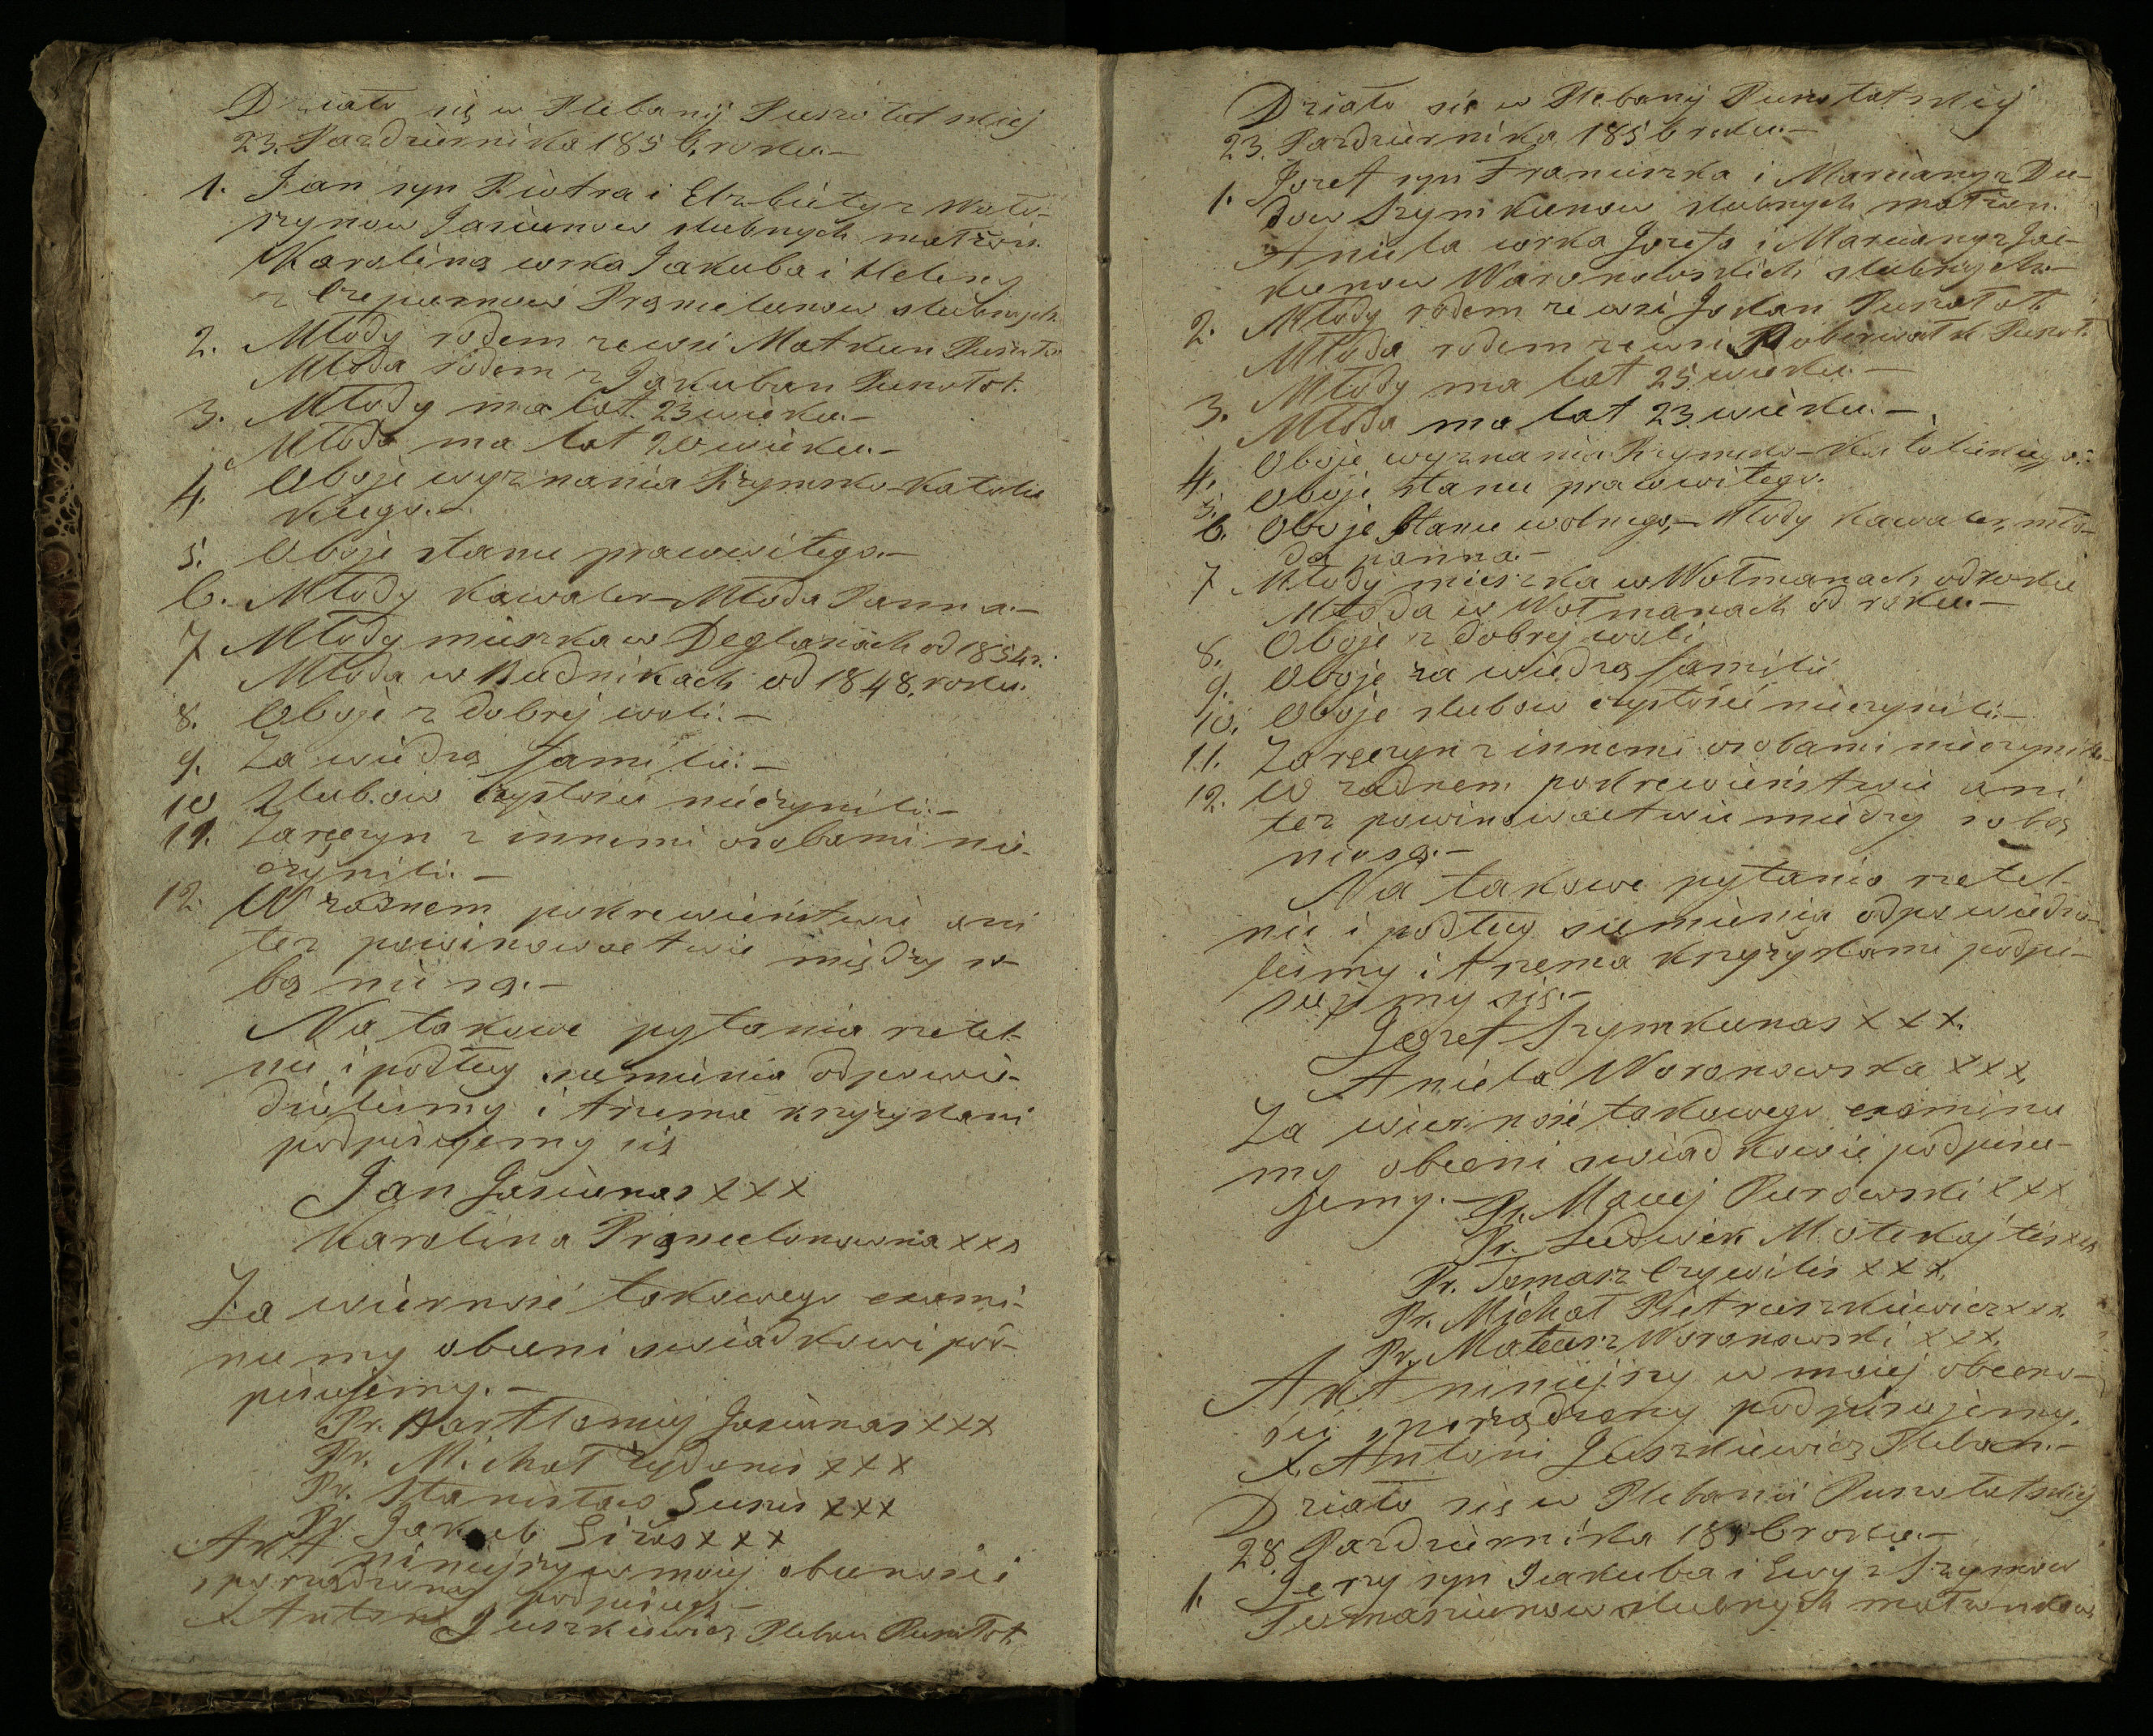 Działo się w Plebanij Puszołatskiej
23. Pazdziernika 1856. roku.—
1. Jan syn Piotra i Elzbiety z
Jasiunow slubnych
Karolina corka Jakuba i Heleny
z slubnych
2. Młody rodem ze wsi
Młoda rodem z Jakuban Puszołat.
3. Młody ma lat 23 wieku.—
Młoda ma lat 20 wieku.—
4. Oboje wyznania Rzymsko-Katolic
kiego.—
5. Oboje stanu prawowitego.—
6. Młody Kawaler Młoda Panna.—
7 Młody mieszka w Deglanach od 1854 r.
Młoda w Rudnikach od 1848. roku.
8. Oboje z dobrej woli.—
9. Za wiedzą familii.—
10 Slubow czystosci nieczynili.—
11. Zaręczyn z innemi osobami nie-
czynili.—
12. W zadnem pokrewieństwie ani
tez powinowactwie między so-
bą nie są.—
Na takowe pytania rzetel-
nie i podług sumienia odpowie-
dzielismy i trzema krzyzykami
podpisujemy się
Jan Jasiunas x x x
Karolina x x x
Za wiernosć takowego exami-
nu my obecni swiadkowi pod-
pisujemy.—
Pr. Bartłomiej Jasiunas x x x
Pr. Michał x x x
Pr. Stanisław x x x
Pr. Jakub x x x
Akt niniejszy w moiej obecnosci
sporządzony podpisuję—
X. Antoni Juszkiewicz Pleban Puszołat.
Działo się w Plebanij Puszołatskiej
23. Pazdziernika 1856 roku.—
1. Jozef syn Franciszka i Marcianny z Du-
dow Szymkunow slubnych
Aniela corka Jozefa i Marcianny z
Woronowskich slubnych.—
2. Młody rodem ze wsi Puszołat.
Młoda rodem ze wsi Puszoł.
3. Młody ma lat 25 wieku.—
Młoda ma lat 23. wieku.—
4. Oboje wyznania Rzymsko-Katolickiego.
5. Oboje stanu prawowitego.
6. Oboje stanu wolnego,— Młody Kawaler, mło-
da panna.—
7 Młody mieszka w Wołmanach od roku
Młoda w Wołmanach od roku.—
8. Oboje z dobrej woli
9. Oboje za wiedzą familii
10. Oboje slubow czystości nieczynili.—
11. Zaręczyn z innemi osobami nieczynili—
12. W zadnem pokrewieństwie ani
tez powinowactwie miedzy sobą
niesą.—
Na takowe pytania rzetel-
nie i podług sumienia odpowiedzie-
lismy i trzema krzyzykami podpi-
sujemy się.—
Jozef Szymkunas x x x.
Aniela Woronowska x x x
Za wiernosć takowego examinu
my obecni swiadkowie podpisu-
jemy.— Pr. Maciej Purowski x x x
Pr. Ludwik x x x
Pr. Tomasz x x x
Pr. Michał Pietruszkiewicz x x x.
Pr. Mateusz Woronowski x x x.
Akt niniejszy w moiej obecno-
sci sporządzony podpisujemy.
X. Antoni Juszkiewicz Pleban.—
Działo się w Plebanii Puszołatskiej
28. Pazdziernika 1856 roku.—
1. Jerzy syn Jakuba i Ewy z
slubnych